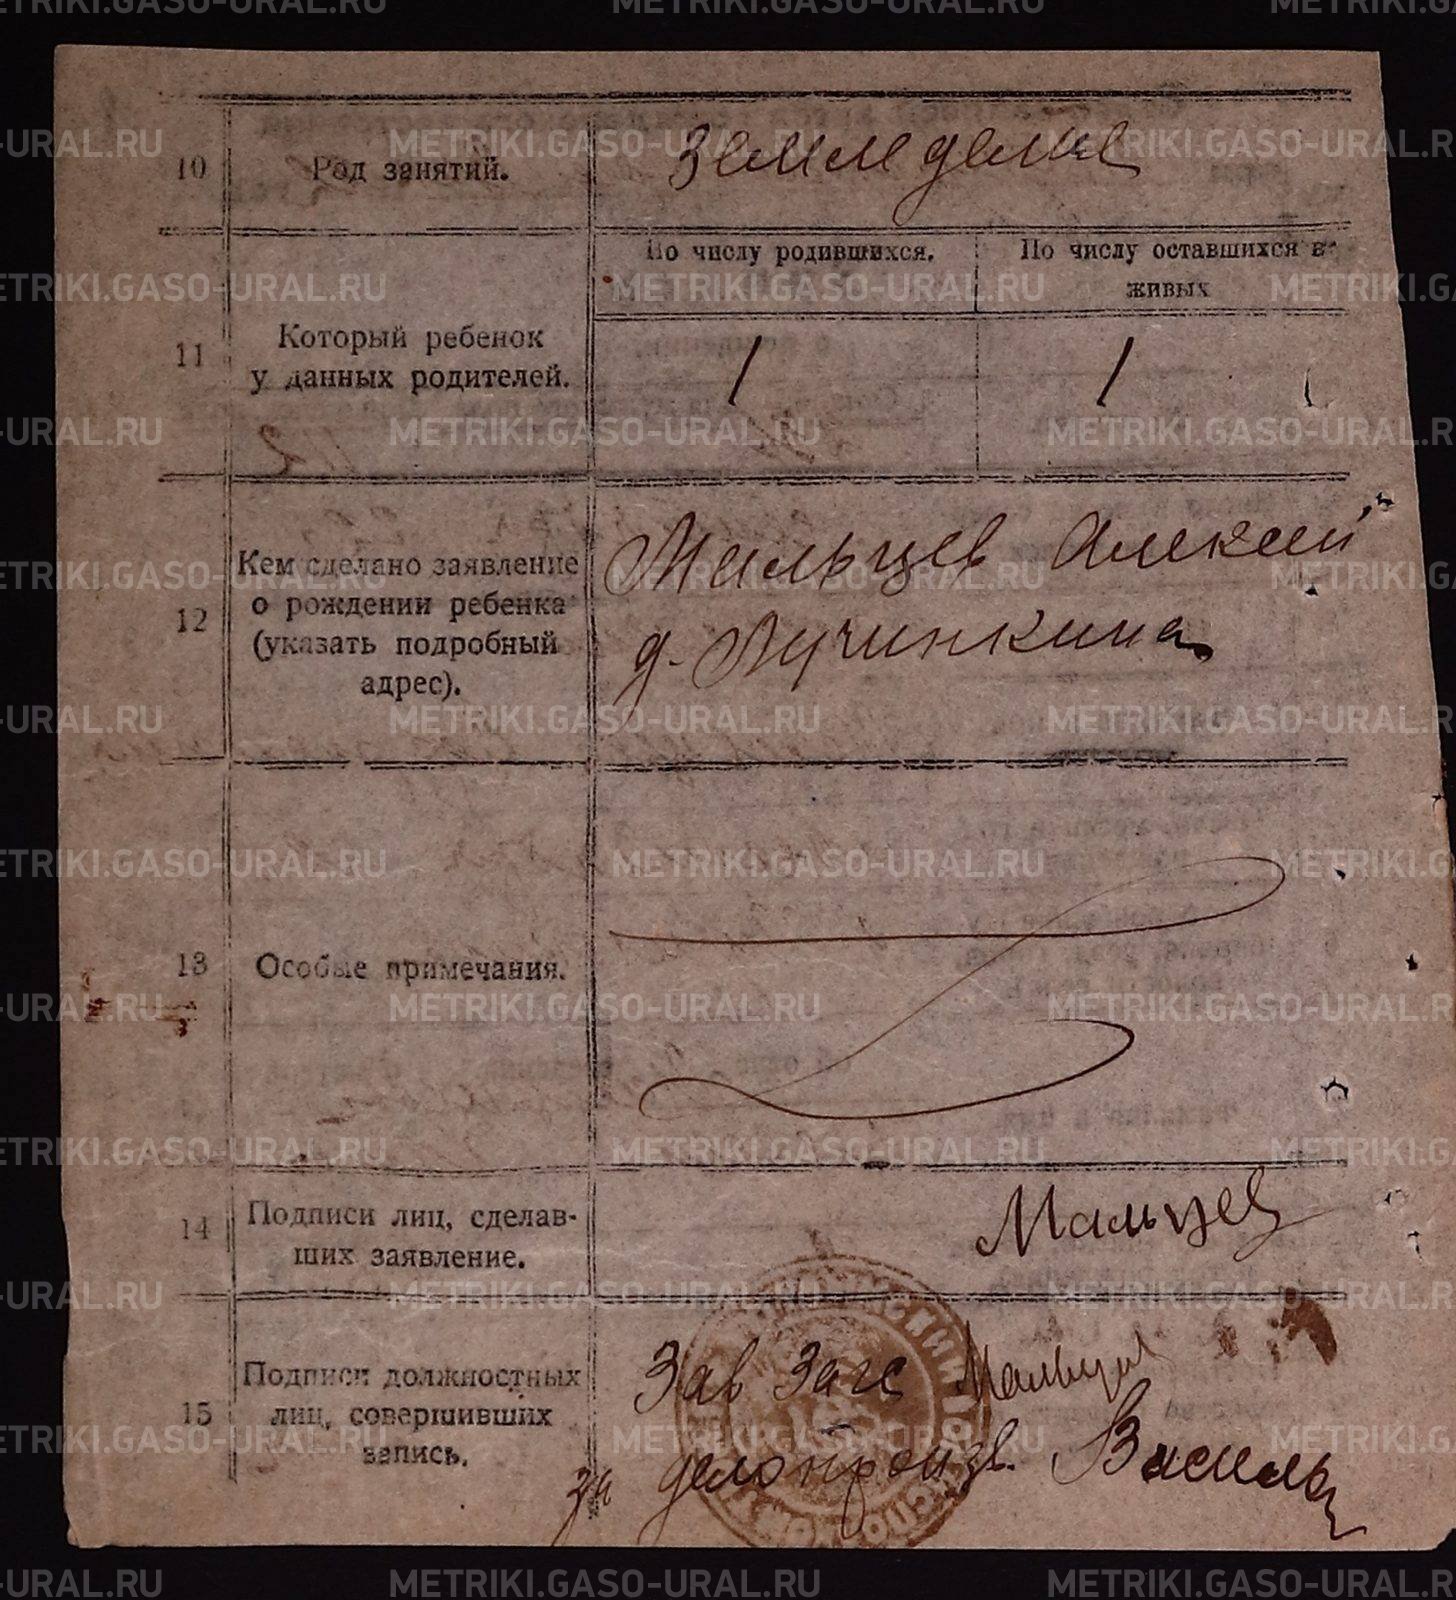 10
Род занятий.
Земледелие
11
Который ребенок
у данных родителей.
По числу родившихся.
По числу оставшихся в
живых
1
1
12
Кем сделано заявление
о рождении ребенка
(указать подробный
адрес).
Мальцев Алексей
д. Лучинкина
13
Особые примечания.
14
Подписи лиц, сделав-
ших заявление.
Мальцев
15
Подписи должностных
лиц, совершивших
запись.
Зав Загс Мальцев
за делопроизв.
METRIKI.GASO-URAL.RU